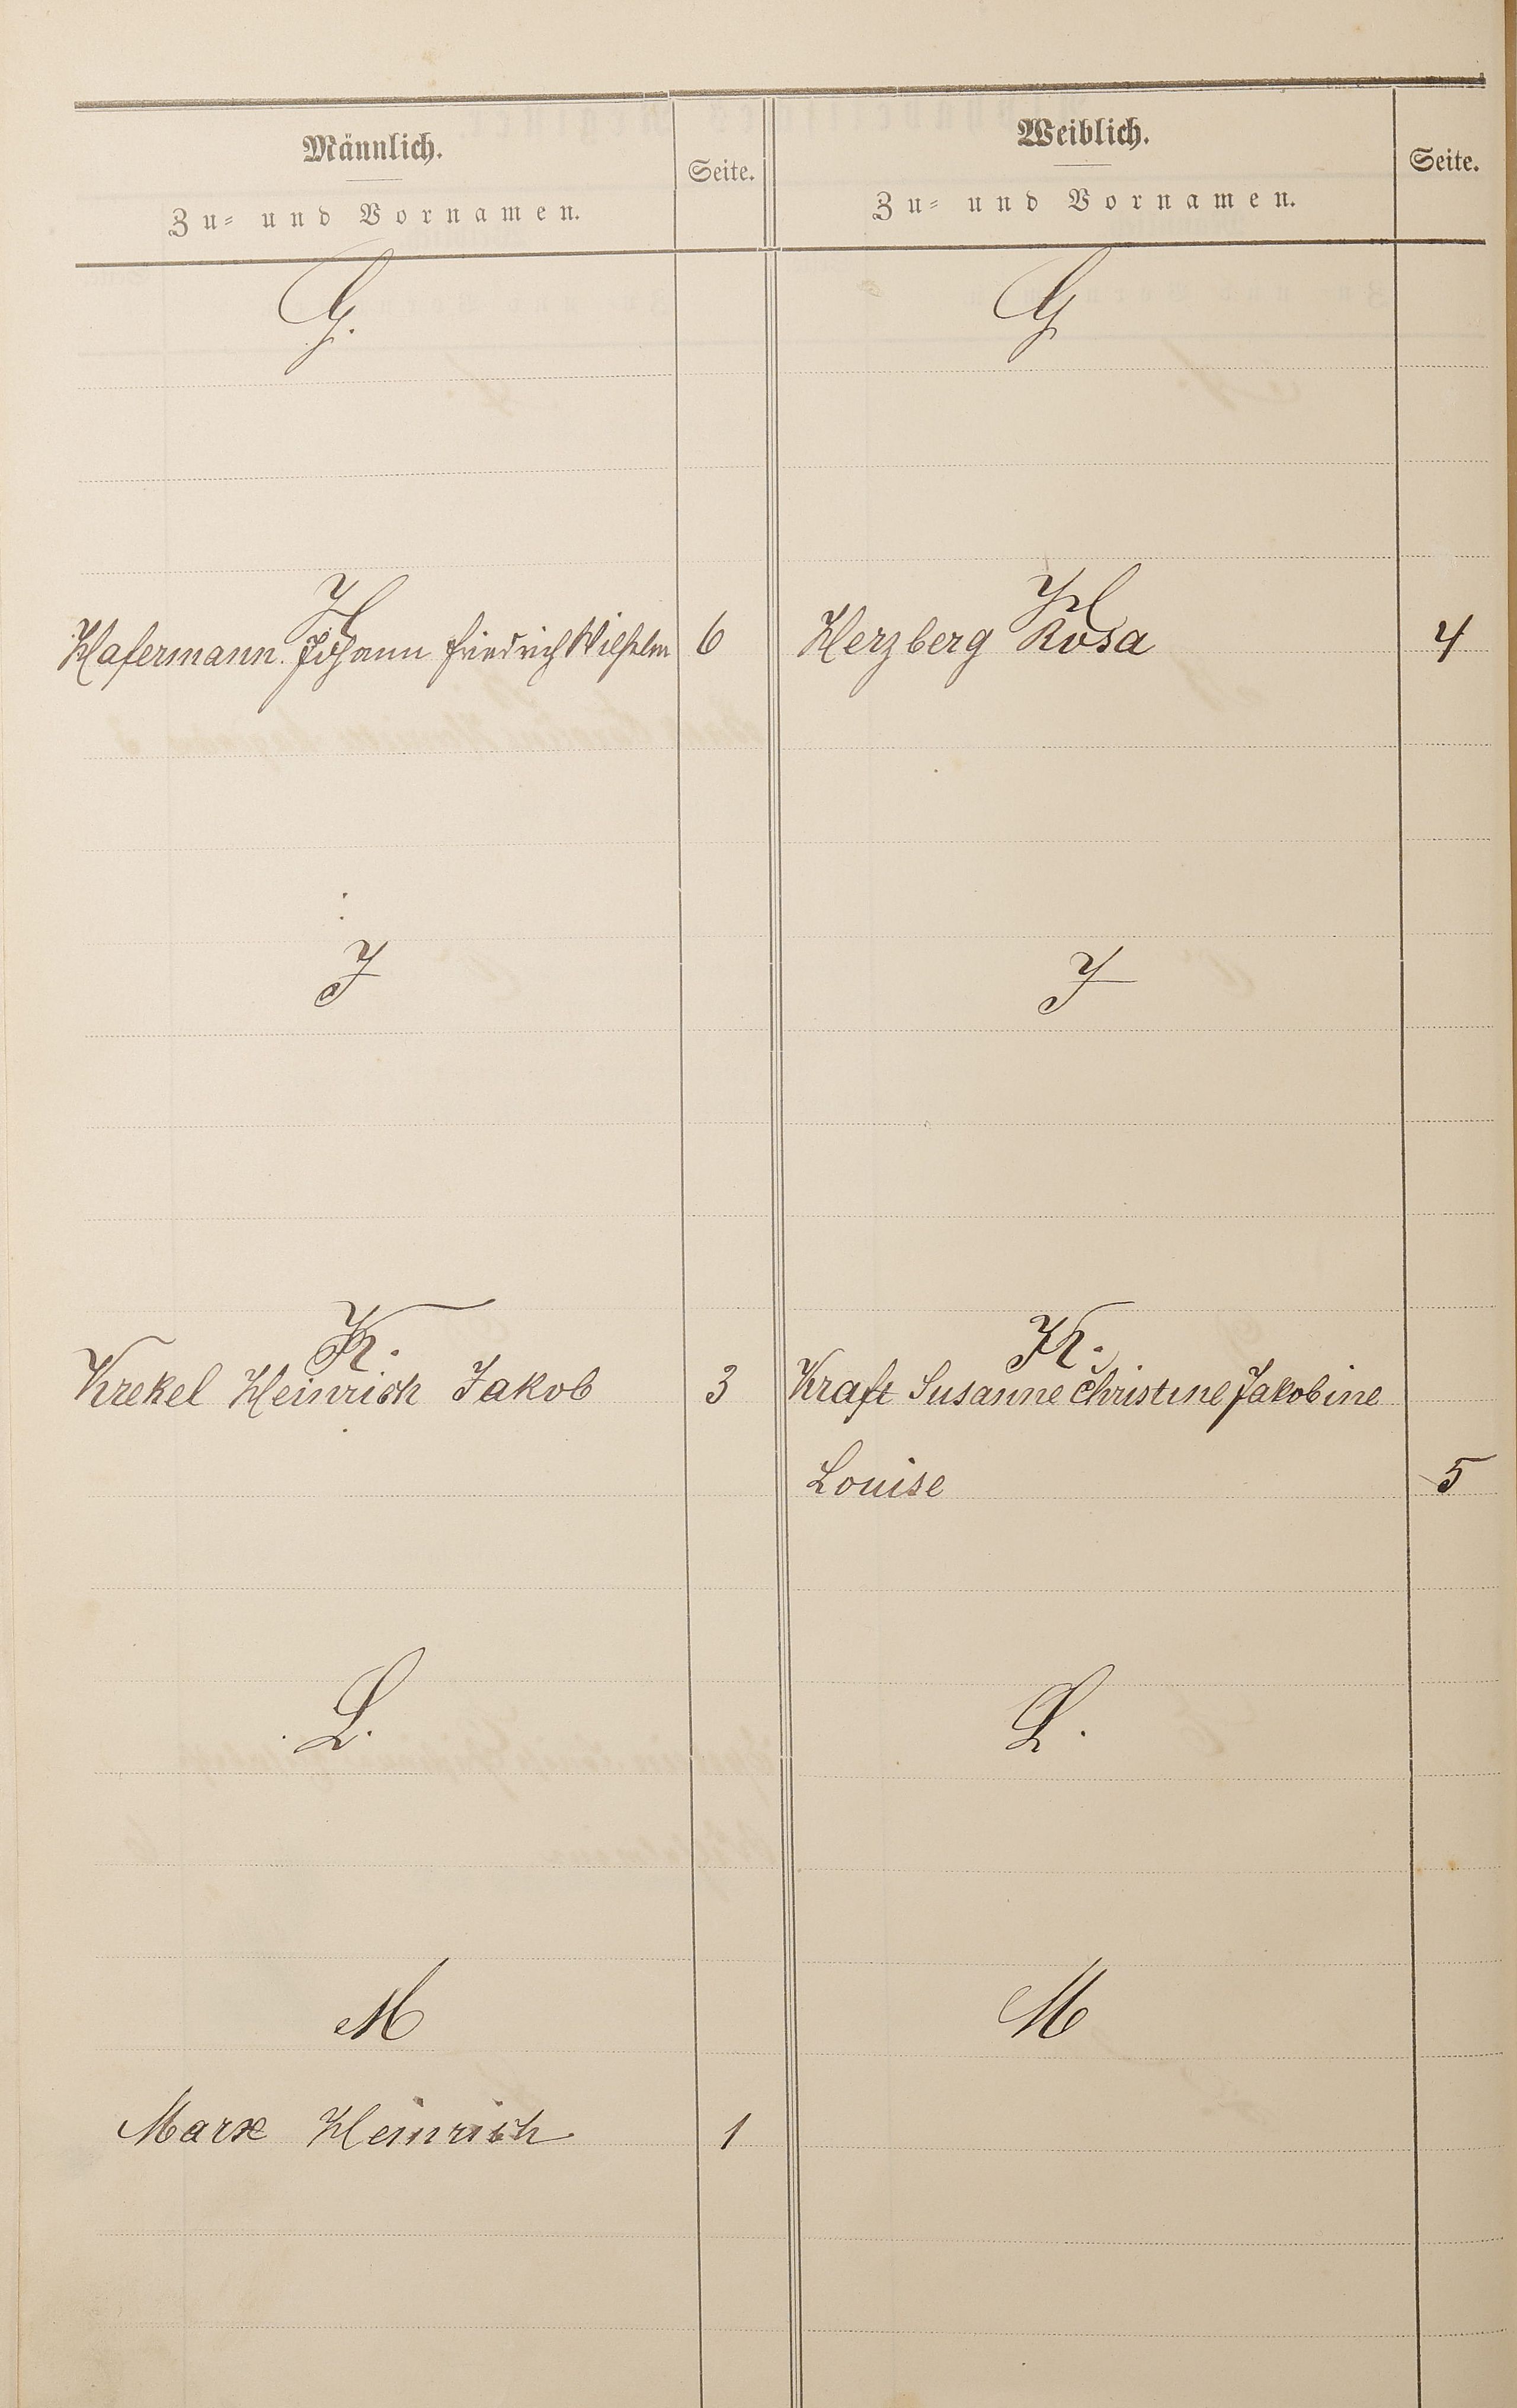 Männlich.
Zu- und Vornamen.
Seite.
Weiblich.
Zu- und Vornamen.
Seite.
G.
G
H
H
Hafermann Johann Friedrich Wilhelm 6
Herzberg Rosa 4
J
J
K.
K.
Krekel Heinrich Jakob 3
Kraft Susanne Christine Jakobine
Louise 5
L.
L.
M
M
Marx Heinrich 1